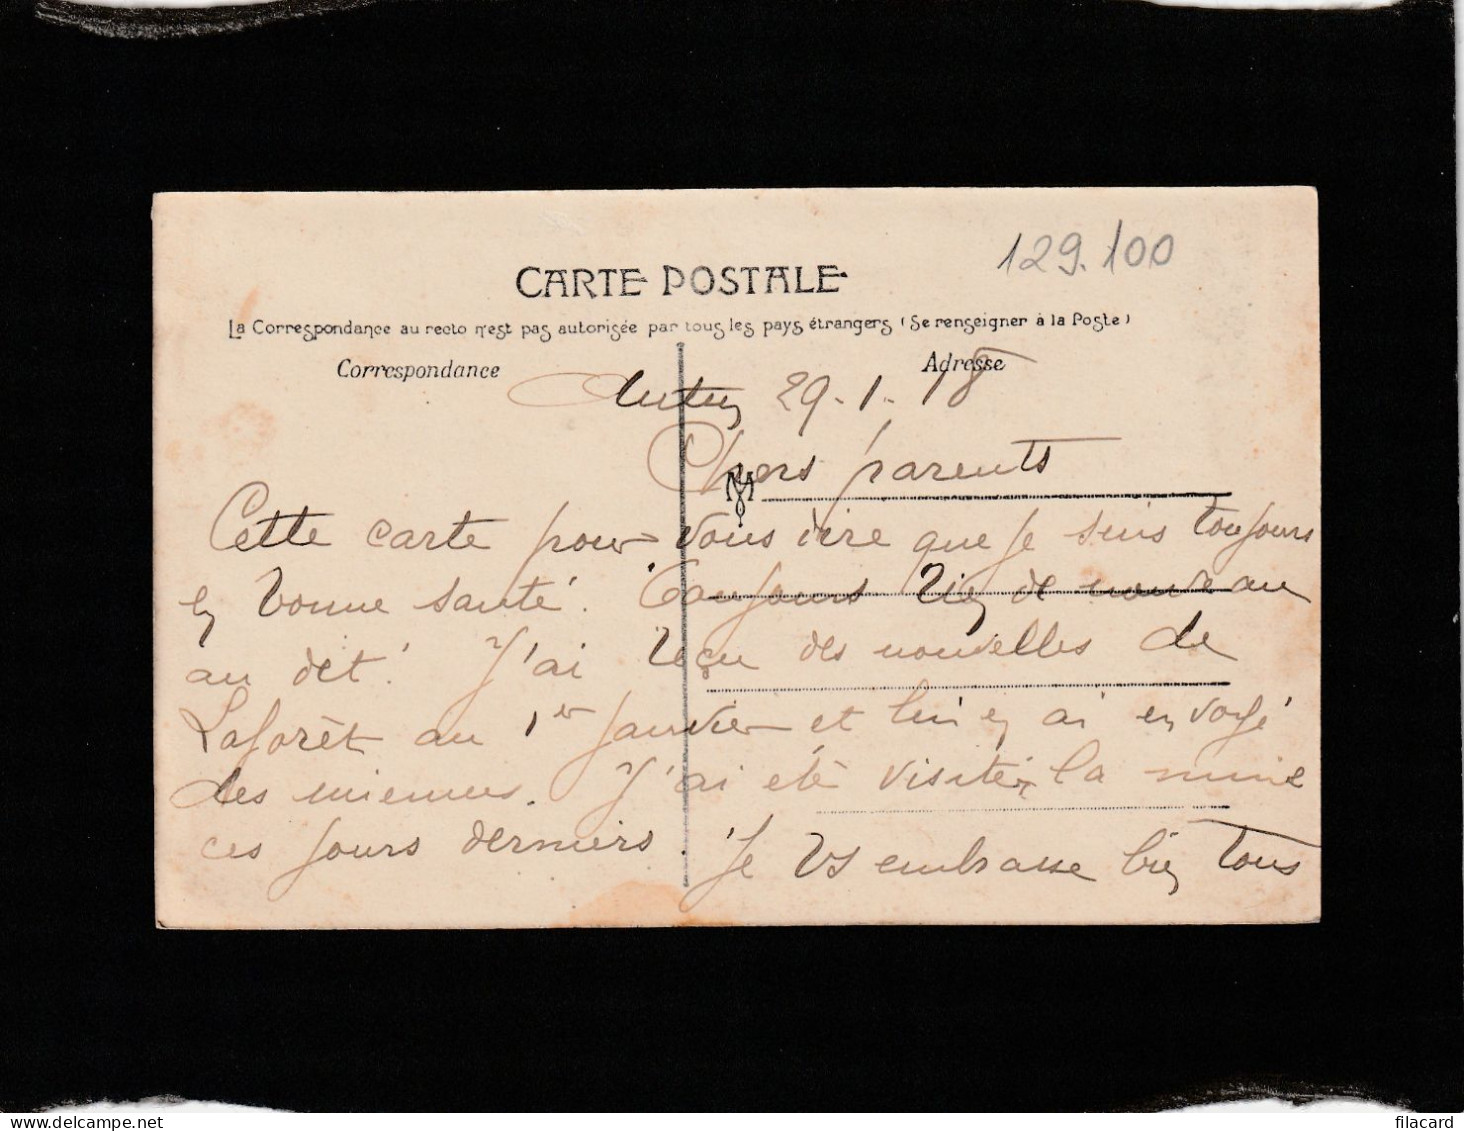 129.100
CARTE POSTALE
La Correspondance au recto n'est pas autorisée par tous les pays étrangers (Se renseigner à la Poste)
Correspondance
Adresse
29-1-18
Chers parents
M
Cette carte pour vous dire que je suis toujours
en bonne santé. Toujours rien de nouveau
au dét! J'ai reçu des nouvelles de
Laforêt au 1er janvier et lui en ai envoyé
des miennes. J'ai été visiter la mine
ces jours derniers. Je vs embrasse bien tous
filacard